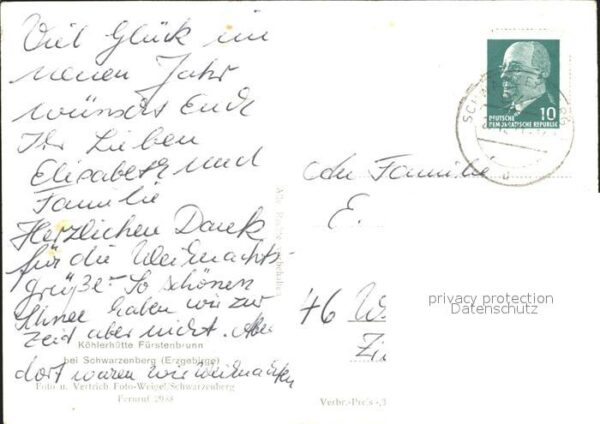 Viel Glück im
neuen Jahr
wünscht Euch
Ihr Lieben
Elisabeth und
Familie
Herzlichen Dank
für die Weihnachts-
grüße. So schönen
Schnee haben wir zur
Zeit aber nicht. Aber
dort waren wir Weihnachten
Köhlerhütte Fürstenbrunn
bei Schwarzenberg (Erzgebirge)
Foto u. Vertrieb Foto-Weigel Schwarzenberg
Fernruf 2988
Alle Rechte vorbehalten
10
DEUTSCHE
DEMOKRATISCHE REPUBLIK
An Familie
E.
46 W
Zi
privacy protection
Datenschutz
Verbr.-Preis